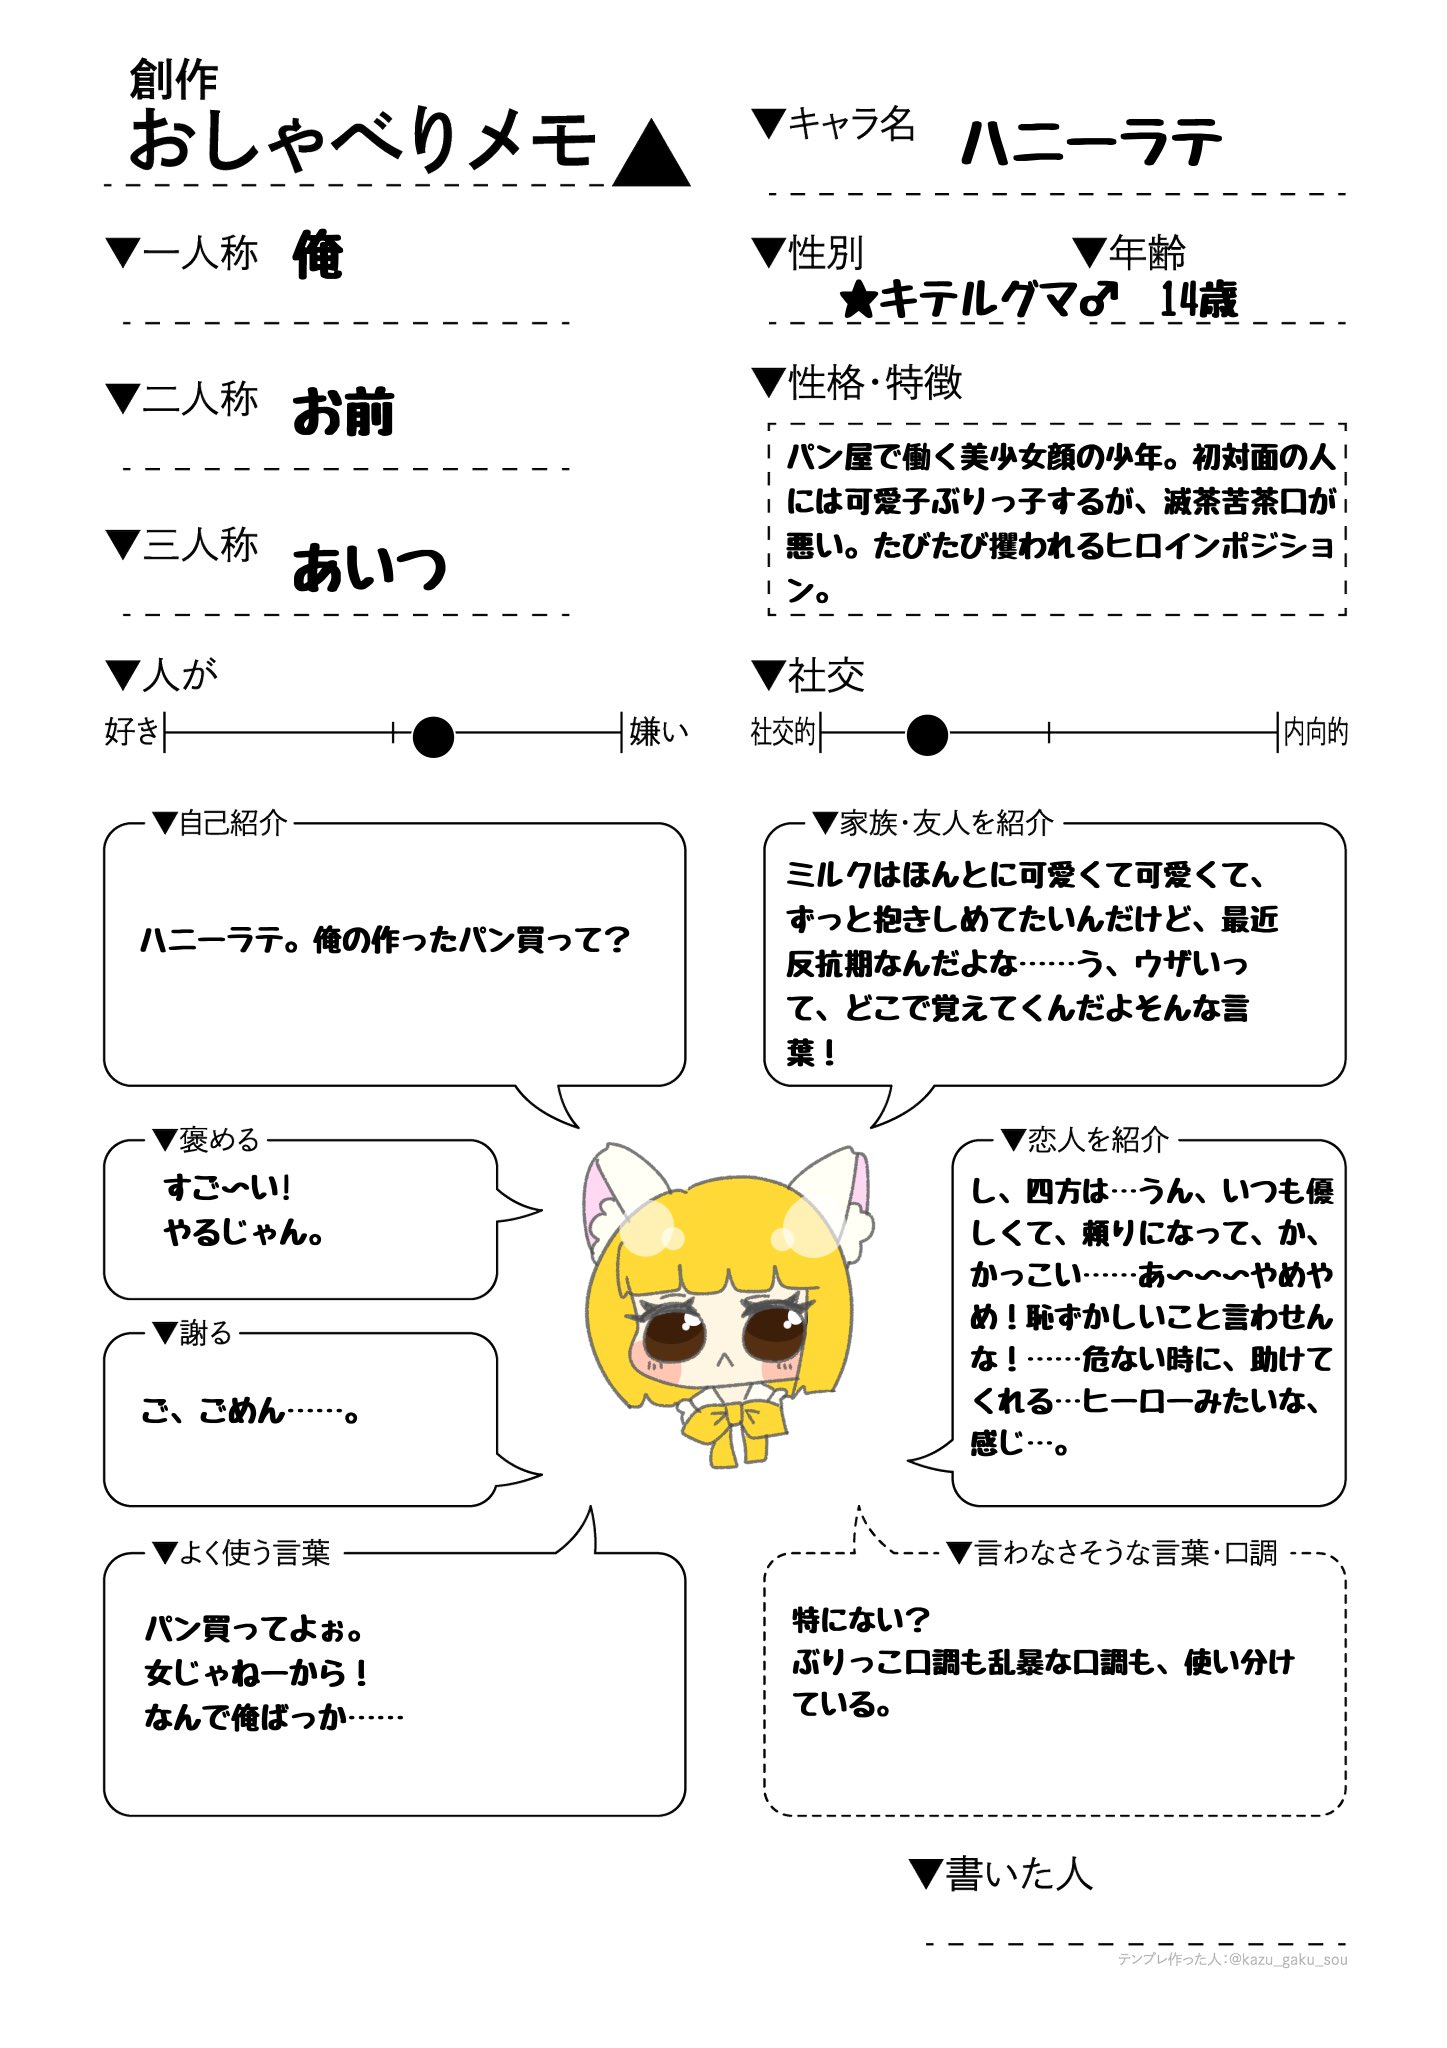 創作
おしゃべりメモ▲
▼キャラ名 ハニーラテ
▼一人称 俺
▼性別 ▼年齢
★キテルグマ♂ 14歳
▼二人称 お前
▼性格・特徴
パン屋で働く美少女顔の少年。初対面の人
には可愛子ぶりっ子するが、滅茶苦茶口が
悪い。たびたび攫われるヒロインポジショ
ン。
▼三人称 あいつ
▼人が
好き 嫌い
▼社交
社交的 内向的
▼自己紹介
ハニーラテ。俺の作ったパン買って？
▼家族・友人を紹介
ミルクはほんとに可愛くて可愛くて、
ずっと抱きしめてたいんだけど、最近
反抗期なんだよな……う、ウザいっ
て、どこで覚えてくんだよそんな言
葉！
▼褒める
すご〜い!
やるじゃん。
▼恋人を紹介
し、四方は…うん、いつも優
しくて、頼りになって、か、
かっこい……あ〜〜〜やめや
め！恥ずかしいこと言わせん
な！……危ない時に、助けて
くれる…ヒーローみたいな、
感じ…。
▼謝る
ご、ごめん……。
▼よく使う言葉
パン買ってよぉ。
女じゃねーから！
なんで俺ばっか……
▼言わなさそうな言葉・口調
特にない？
ぶりっこ口調も乱暴な口調も、使い分け
ている。
▼書いた人
テンプレ作った人：@kazu_gaku_sou